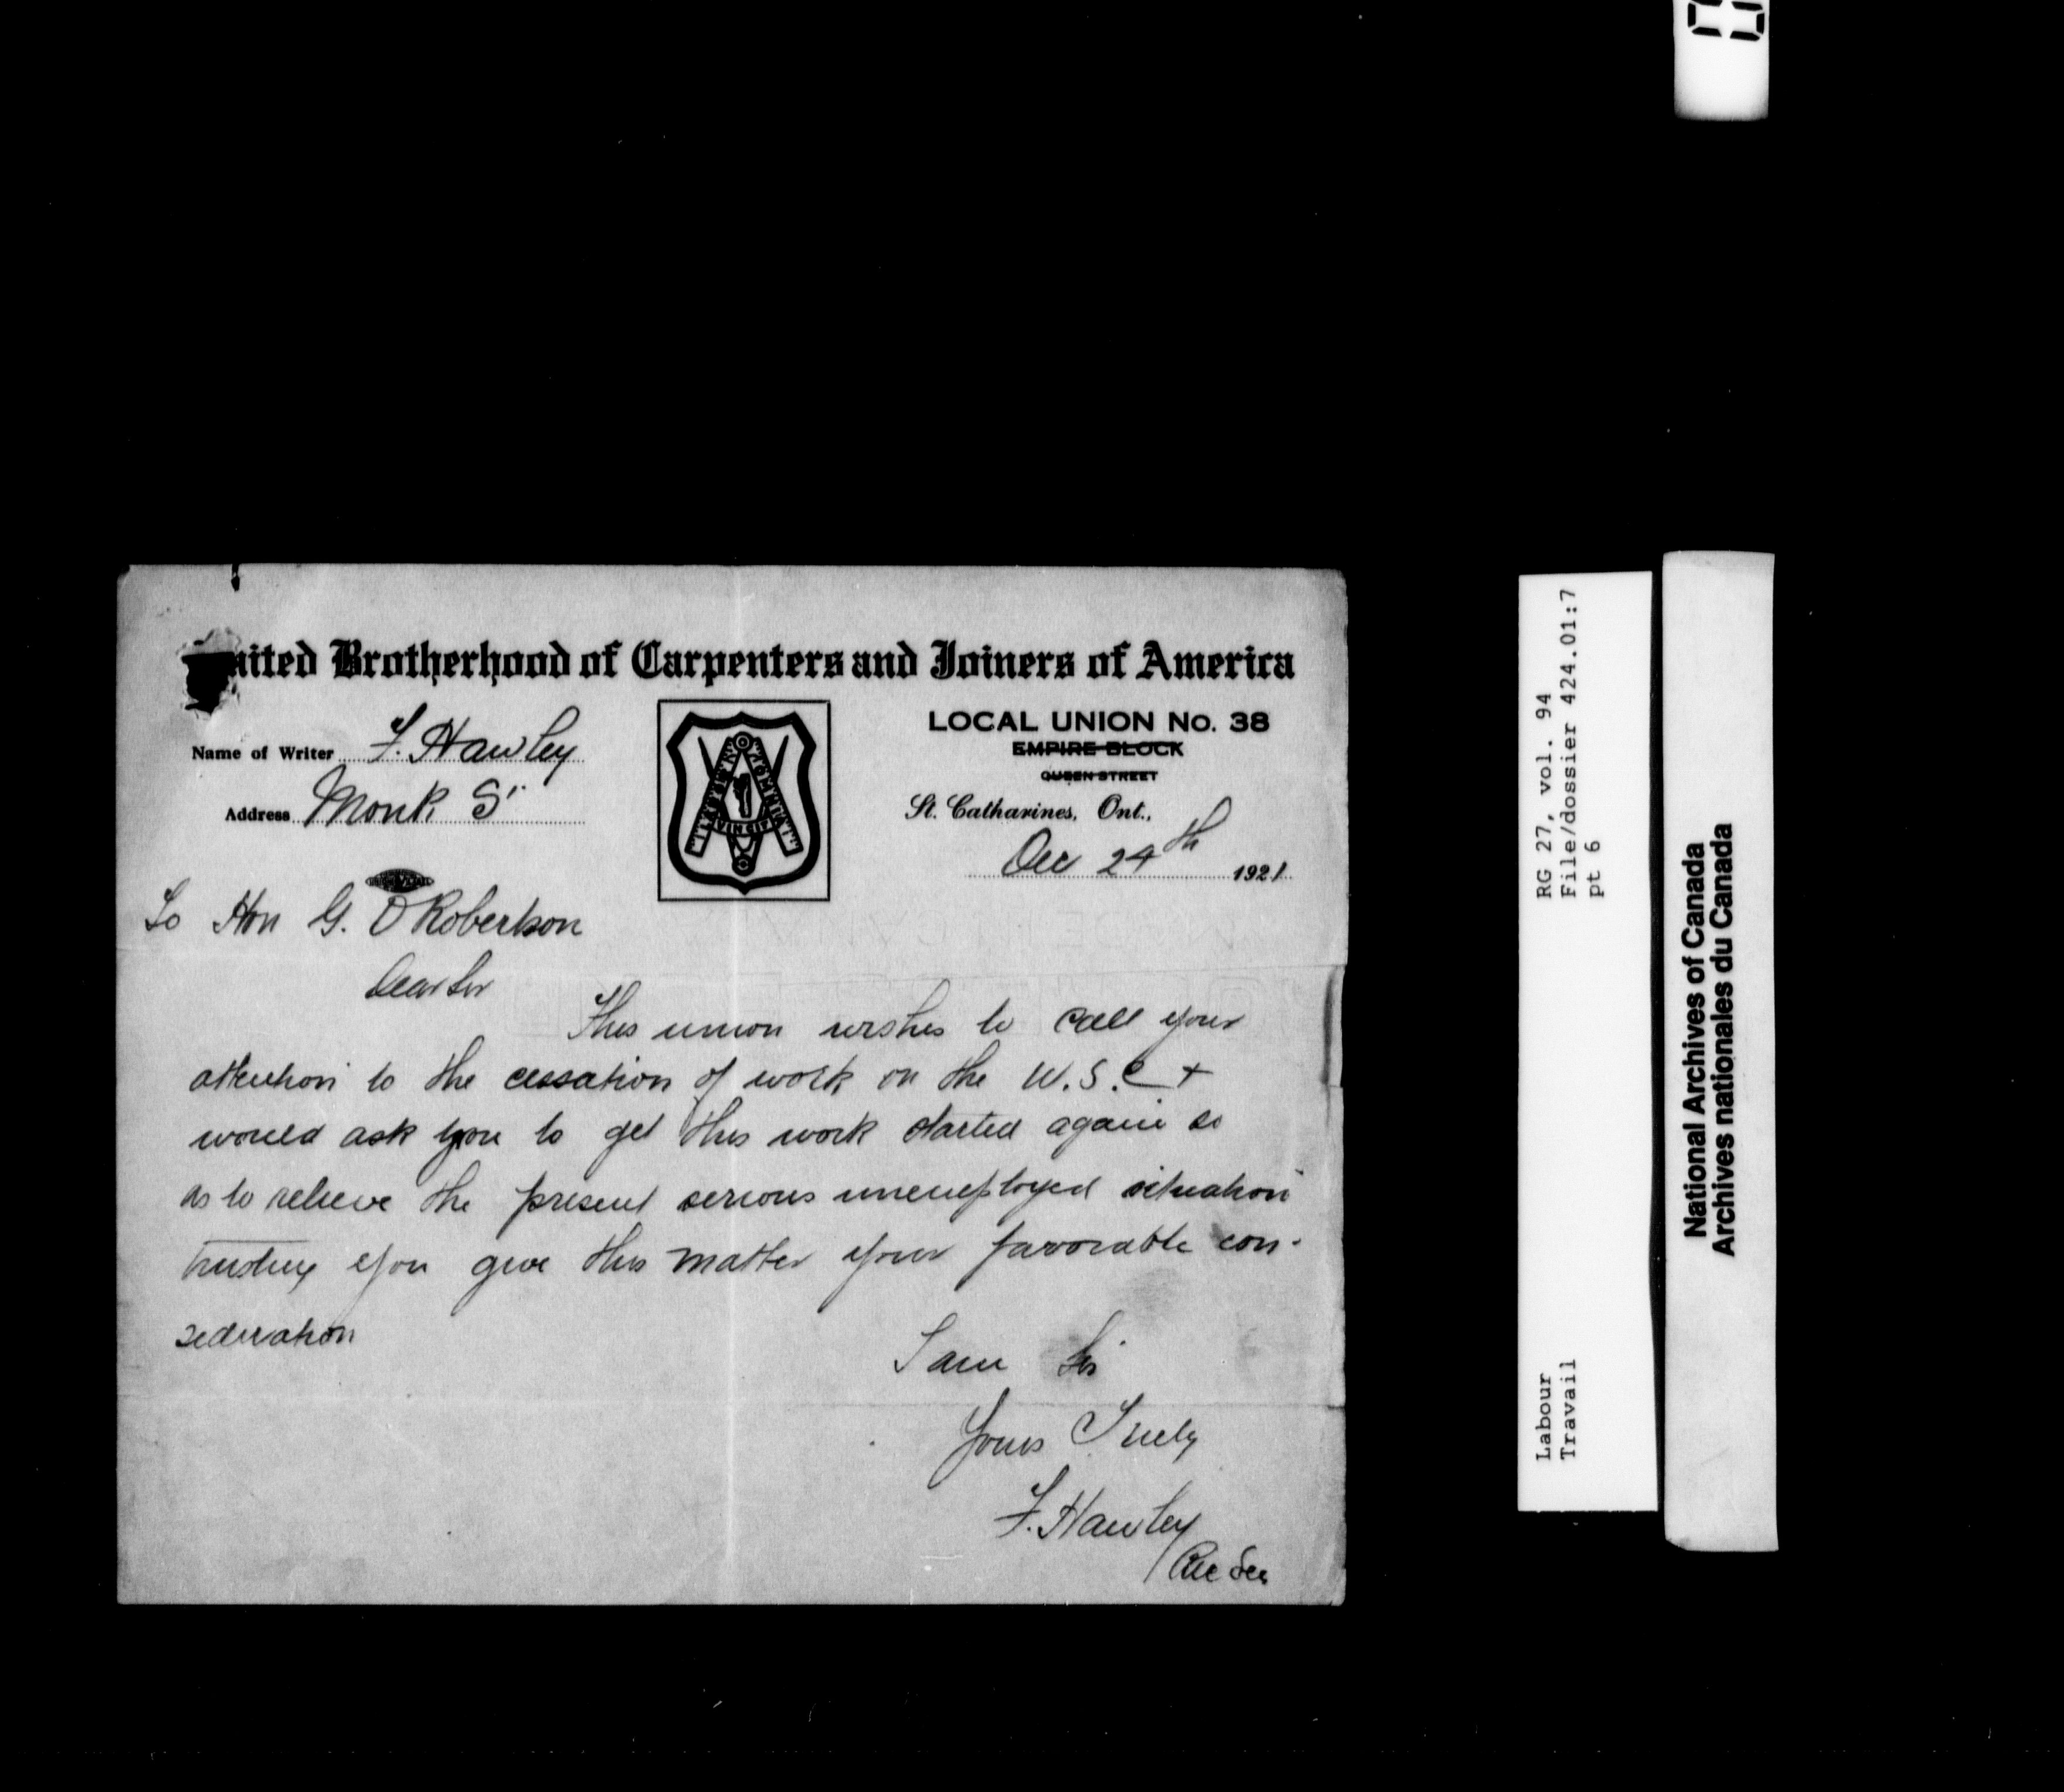 United Brotherhood of Carpenters and Joiners of America
Name of Writer F. Hawley
Address Monk St
LOCAL UNION No. 38
EMPIRE BLOCK
QUEEN STREET
St. Catharines, Ont.,
Dec 24th 1921
To Hon G. D Robertson
Dear Sir
This union wishes to call your
attention to the cessation of work on the W.S.C +
would ask you to get this work started again so
as to relieve the present serious unemployed situation
trusting you give this matter your favorable con-
sideration
I am Sir
Yours Truly
F. Hawley
Rec Sec
RG 27, vol. 94
File/dossier 424.01:7
pt 6
Labour
Travail
National Archives of Canada
Archives nationales du Canada